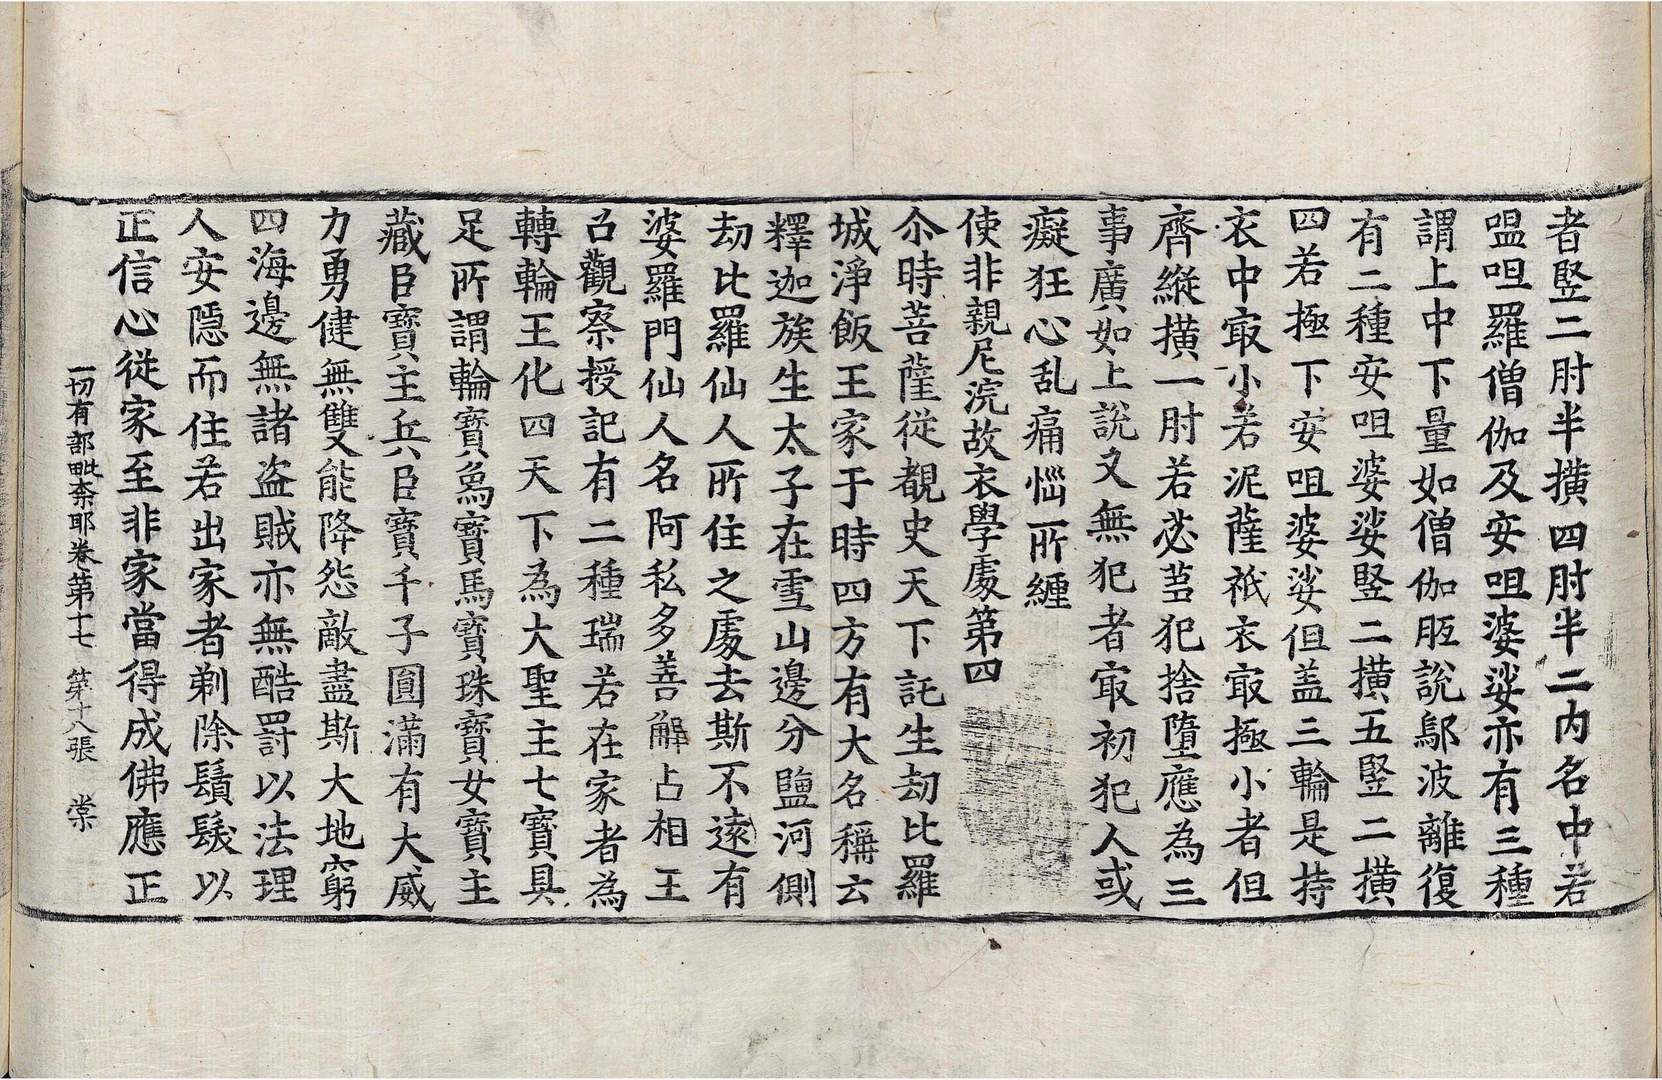 者竪二肘半撗四肘半二内名中若
嗢呾羅僧伽及安呾婆娑亦有三種
謂上中下量如僧伽胝說鄔波離復
有二種安呾婆娑竪二撗五竪二撗
四若極下安呾婆娑但盖三輪是持
衣中冣小若泥薩祇衣冣極小者但
齊縱撗一肘若苾芻犯捨墮應為三
事廣如上說又無犯者冣初犯人或
癡狂心乱痛惱所纏
使非親尼浣故衣學處第四
尒時菩薩從覩史天下託生劫比羅
城淨飯王家于時四方有大名稱云
釋迦族生太子在雪山邊分鹽河側
劫比羅仙人所住之處去斯不遠有
婆羅門仙人名阿私多善解占相王
召觀察授記有二種瑞若在家者為
轉輪王化四天下為大聖主七寶具
足所謂輪寶爲寶馬寶珠寶女寶主
藏臣寶主兵臣寶千子圓滿有大威
力勇健無雙能降怨敵盡斯大地窮
四海邊無諸盗賊亦無酷罰以法理
人安隱而住若出家者剃除鬚髮以
正信心從家至非家當得成佛應正
一切有部毗奈耶卷第十七　第十八張　棠